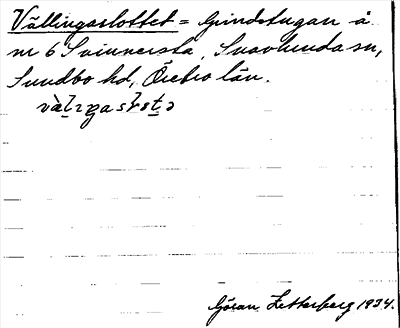 Vällingaslottet = Grindstugan å
nr 6 Svinnersta, Svavlunda sn,
Sundbo hd, Örebro län.
Göran Zetterberg 1934.